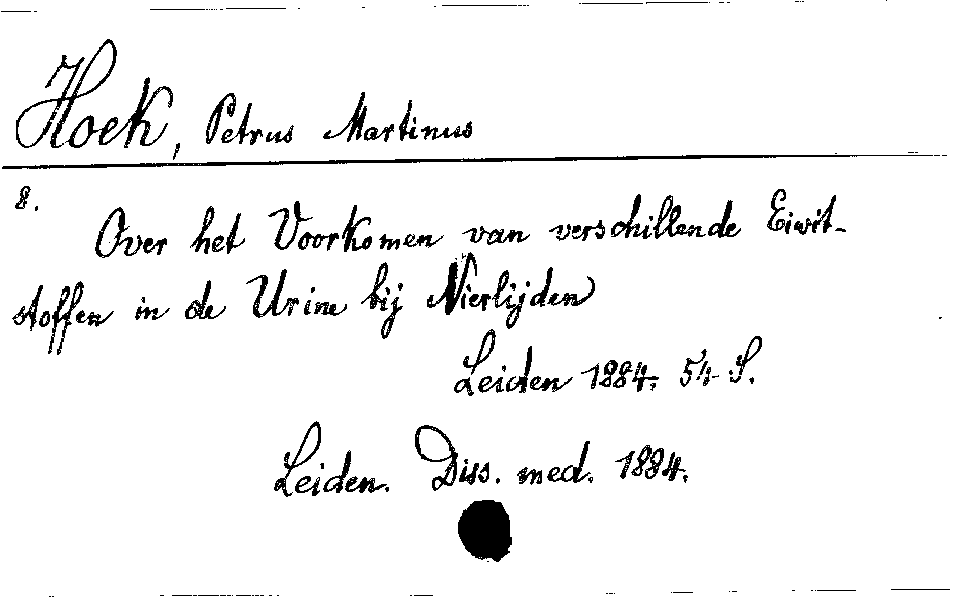 Hoek, Petrus Martinus
8.
Over het Voorkomen van verschillende Eiwit-
stoffen in de Urine bij Nierlijden
Leiden 1884. 54 S.
Leiden. Diss. med. 1884.